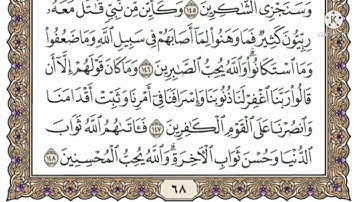 وَسَنَجْزِي الشَّاكِرِينَ ١٤٥ وَكَأَيِّن مِّن نَّبِيٍّ قَاتَلَ مَعَهُ
رِبِّيُّونَ كَثِيرٌ فَمَا وَهَنُوا لِمَا أَصَابَهُمْ فِي سَبِيلِ اللَّهِ وَمَا ضَعُفُوا
وَمَا اسْتَكَانُوا ۗ وَاللَّهُ يُحِبُّ الصَّابِرِينَ ١٤٦ وَمَا كَانَ قَوْلَهُمْ إِلَّا أَن
قَالُوا رَبَّنَا اغْفِرْ لَنَا ذُنُوبَنَا وَإِسْرَافَنَا فِي أَمْرِنَا وَثَبِّتْ أَقْدَامَنَا
وَانصُرْنَا عَلَى الْقَوْمِ الْكَافِرِينَ ١٤٧ فَآتَاهُمُ اللَّهُ ثَوَابَ
الدُّنْيَا وَحُسْنَ ثَوَابِ الْآخِرَةِ ۗ وَاللَّهُ يُحِبُّ الْمُحْسِنِينَ ١٤٨
٦٨